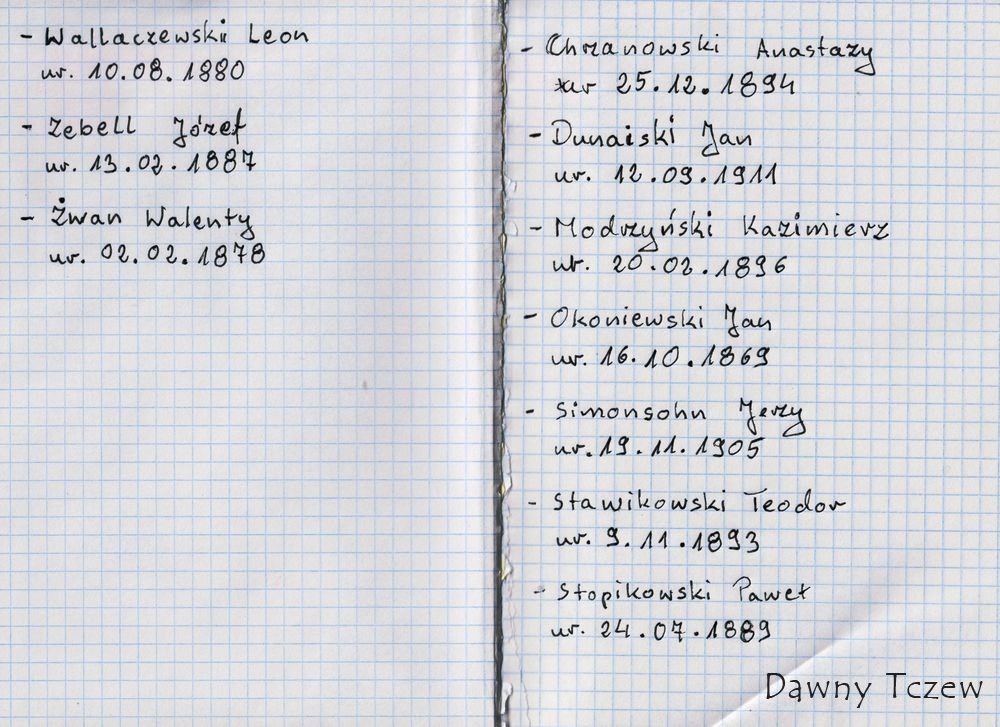 - Wallaczewski Leon
ur. 10.08.1880
- Zebell Józef
ur. 13.02.1887
- Żwan Walenty
ur. 02.02.1878
- Chrzanowski Anastazy
ur 25.12.1894
- Dunaiski Jan
ur. 12.09.1911
- Modrzyński Kazimierz
ur. 20.02.1896
- Okoniewski Jan
ur. 16.10.1869
- Simonsohn Jerzy
ur. 19.11.1905
- Stawikowski Teodor
ur. 9.11.1893
- Stopikowski Paweł
ur. 24.07.1889
Dawny Tczew